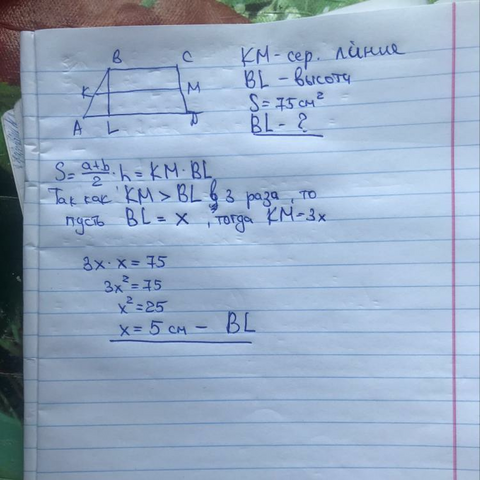 B C
KM - сер. линие
K M
BL - высота
S = 75 см²
A L D
BL - ?
S = a+b/2 · h = KM · BL
Так как KM > BL в 3 раза, то
пусть BL = x, тогда KM = 3x
3x · x = 75
3x² = 75
x² = 25
x = 5 см - BL